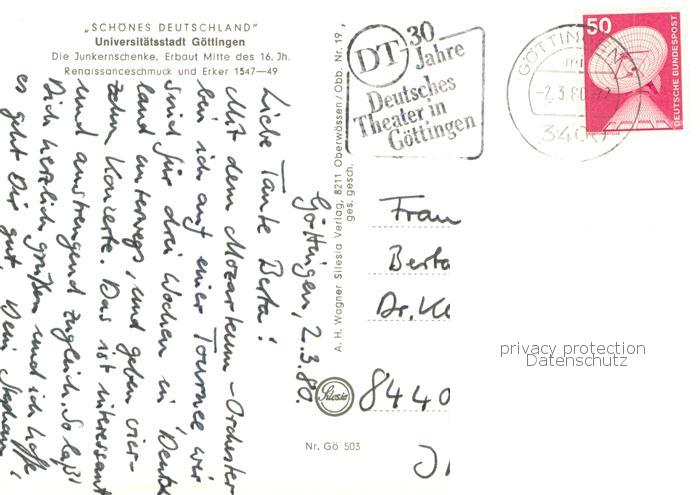 „SCHÖNES DEUTSCHLAND"
Universitätsstadt Göttingen
Die Junkernschenke. Erbaut Mitte des 16. Jh.
Renaissanceschmuck und Erker 1547—49
Göttingen, 2.3.80.
Liebe Tante Berta!
Mit dem Mozarteum-Orchester
bin ich auf einer Tournee wir
sind für drei Wochen in Deutsch
land unterwegs, und geben vier-
zehn Konzerte. Das ist interessant
und anstrengend zugleich. So laß'
Dich herzlich grüßen und ich hoffe,
es geht Dir gut, Dein Stephan
A. H. Wagner Silesia Verlag, 8211 Oberwössen/Obb. Nr. 19,
ges. gesch.
Silesia
Nr. Gö 503
DT 30
Jahre
Deutsches
Theater in
Göttingen
GÖTTINGEN
-2.3.80
3400
50
DEUTSCHE BUNDESPOST
Frau
Berta
Dr. Ke
8440
privacy protection
Datenschutz